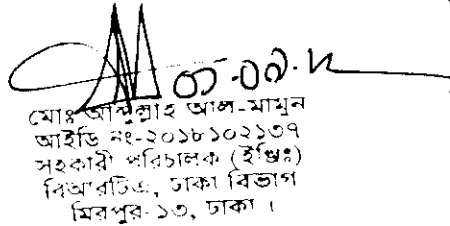 ০১-০৯-২
মোঃ আব্দুল্লাহ আল-মামুন
আইডি নং-২০১৮১০২১৩৭
সহকারী পরিচালক (ইঞ্জিঃ)
বিআরটিএ, ঢাকা বিভাগ
মিরপুর-১৩, ঢাকা ।